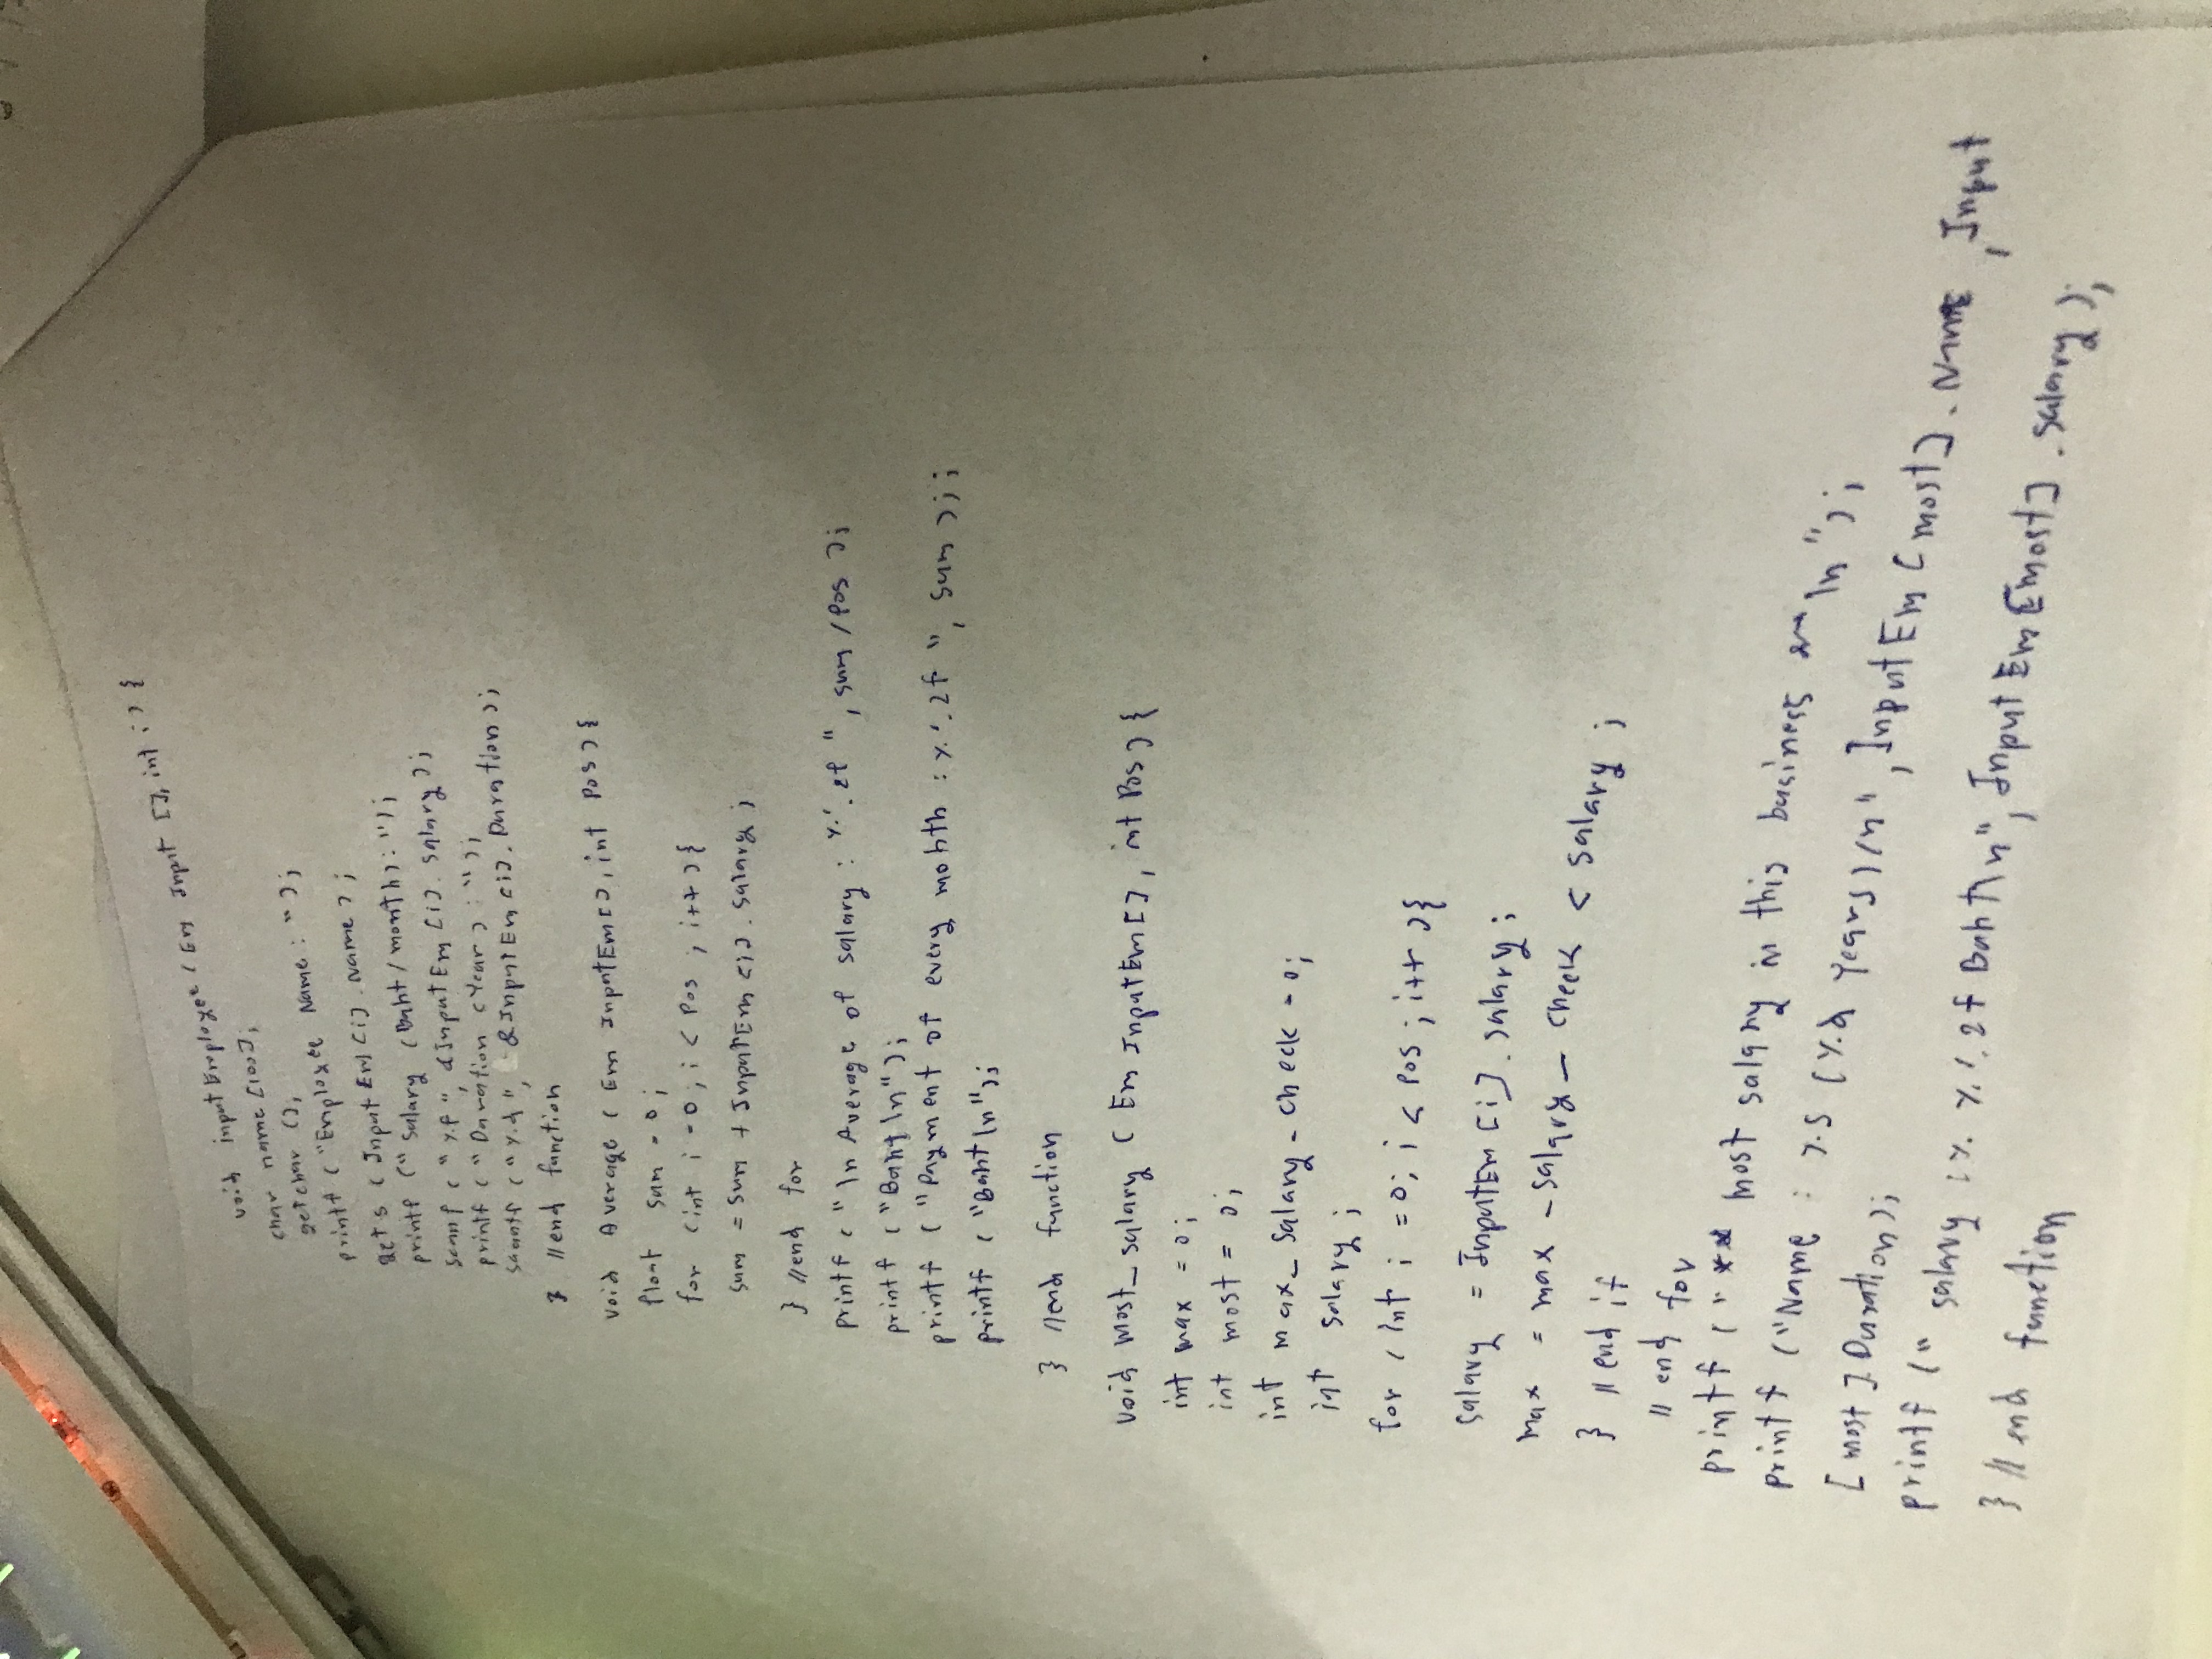 void inputEmployee ( Em Input [], int i ) {
char name [100];
getchar ();
printf ( "Employee Name : " );
gets ( InputEm [i] . Name ) ;
printf (" Salary (Baht / month) : ");
scanf ( " %f ", &InputEm [i] . salary );
printf ( " Duration (Year ) : " );
scantf ( " %d ", &InputEm [i] . Duration );
} //end function
void Average ( Em InputEm[], int Pos ) {
float sum = 0 ;
for (int i = 0 ; i < Pos ; i++ ) {
sum = sum + InputEm [i] . salary ;
} //end for
printf ( " \n Average of salary : %'.2f ", sum / Pos );
printf ( "Baht \n" );
printf ( "Payment of every month : %'.2f ", sum ); ;
printf ( "Baht \n");
} //end function
void most_salary ( Em InputEm[], int Pos ) {
int max = 0 ;
int most = 0;
int max_salary_check = 0;
int salary ;
for ( int i = 0; i < Pos ; i++ ) {
salary = InputEm [i] . salary ;
max = max_salary_check < salary ;
} // end if
// end for
printf ( " ** most salary in this business ** \n ");
printf ("Name : %s (%d Years) /n" , InputEm [most] . Name , Input
[ most ] . Duration);
printf (" salary : %. %'.2f Baht\n", InputEm [most] . salary );
} // end function